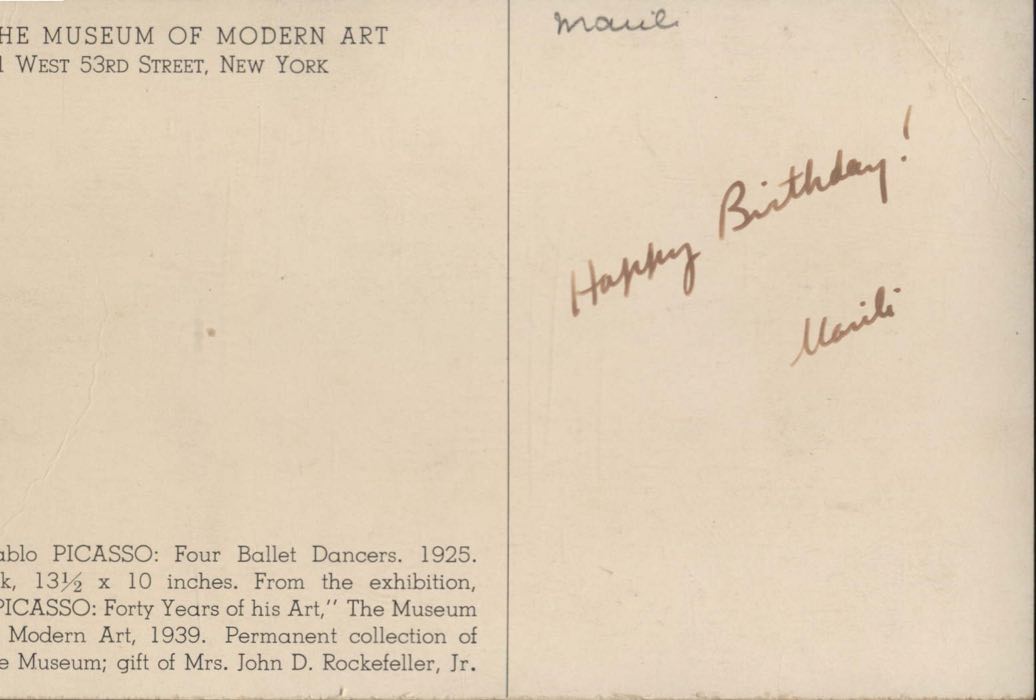 HE MUSEUM OF MODERN ART
1 WEST 53RD STREET, NEW YORK
ablo PICASSO: Four Ballet Dancers. 1925.
k, 13½ x 10 inches. From the exhibition,
PICASSO: Forty Years of his Art,'' The Museum
Modern Art, 1939. Permanent collection of
e Museum; gift of Mrs. John D. Rockefeller, Jr.
Happy Birthday!
Marili